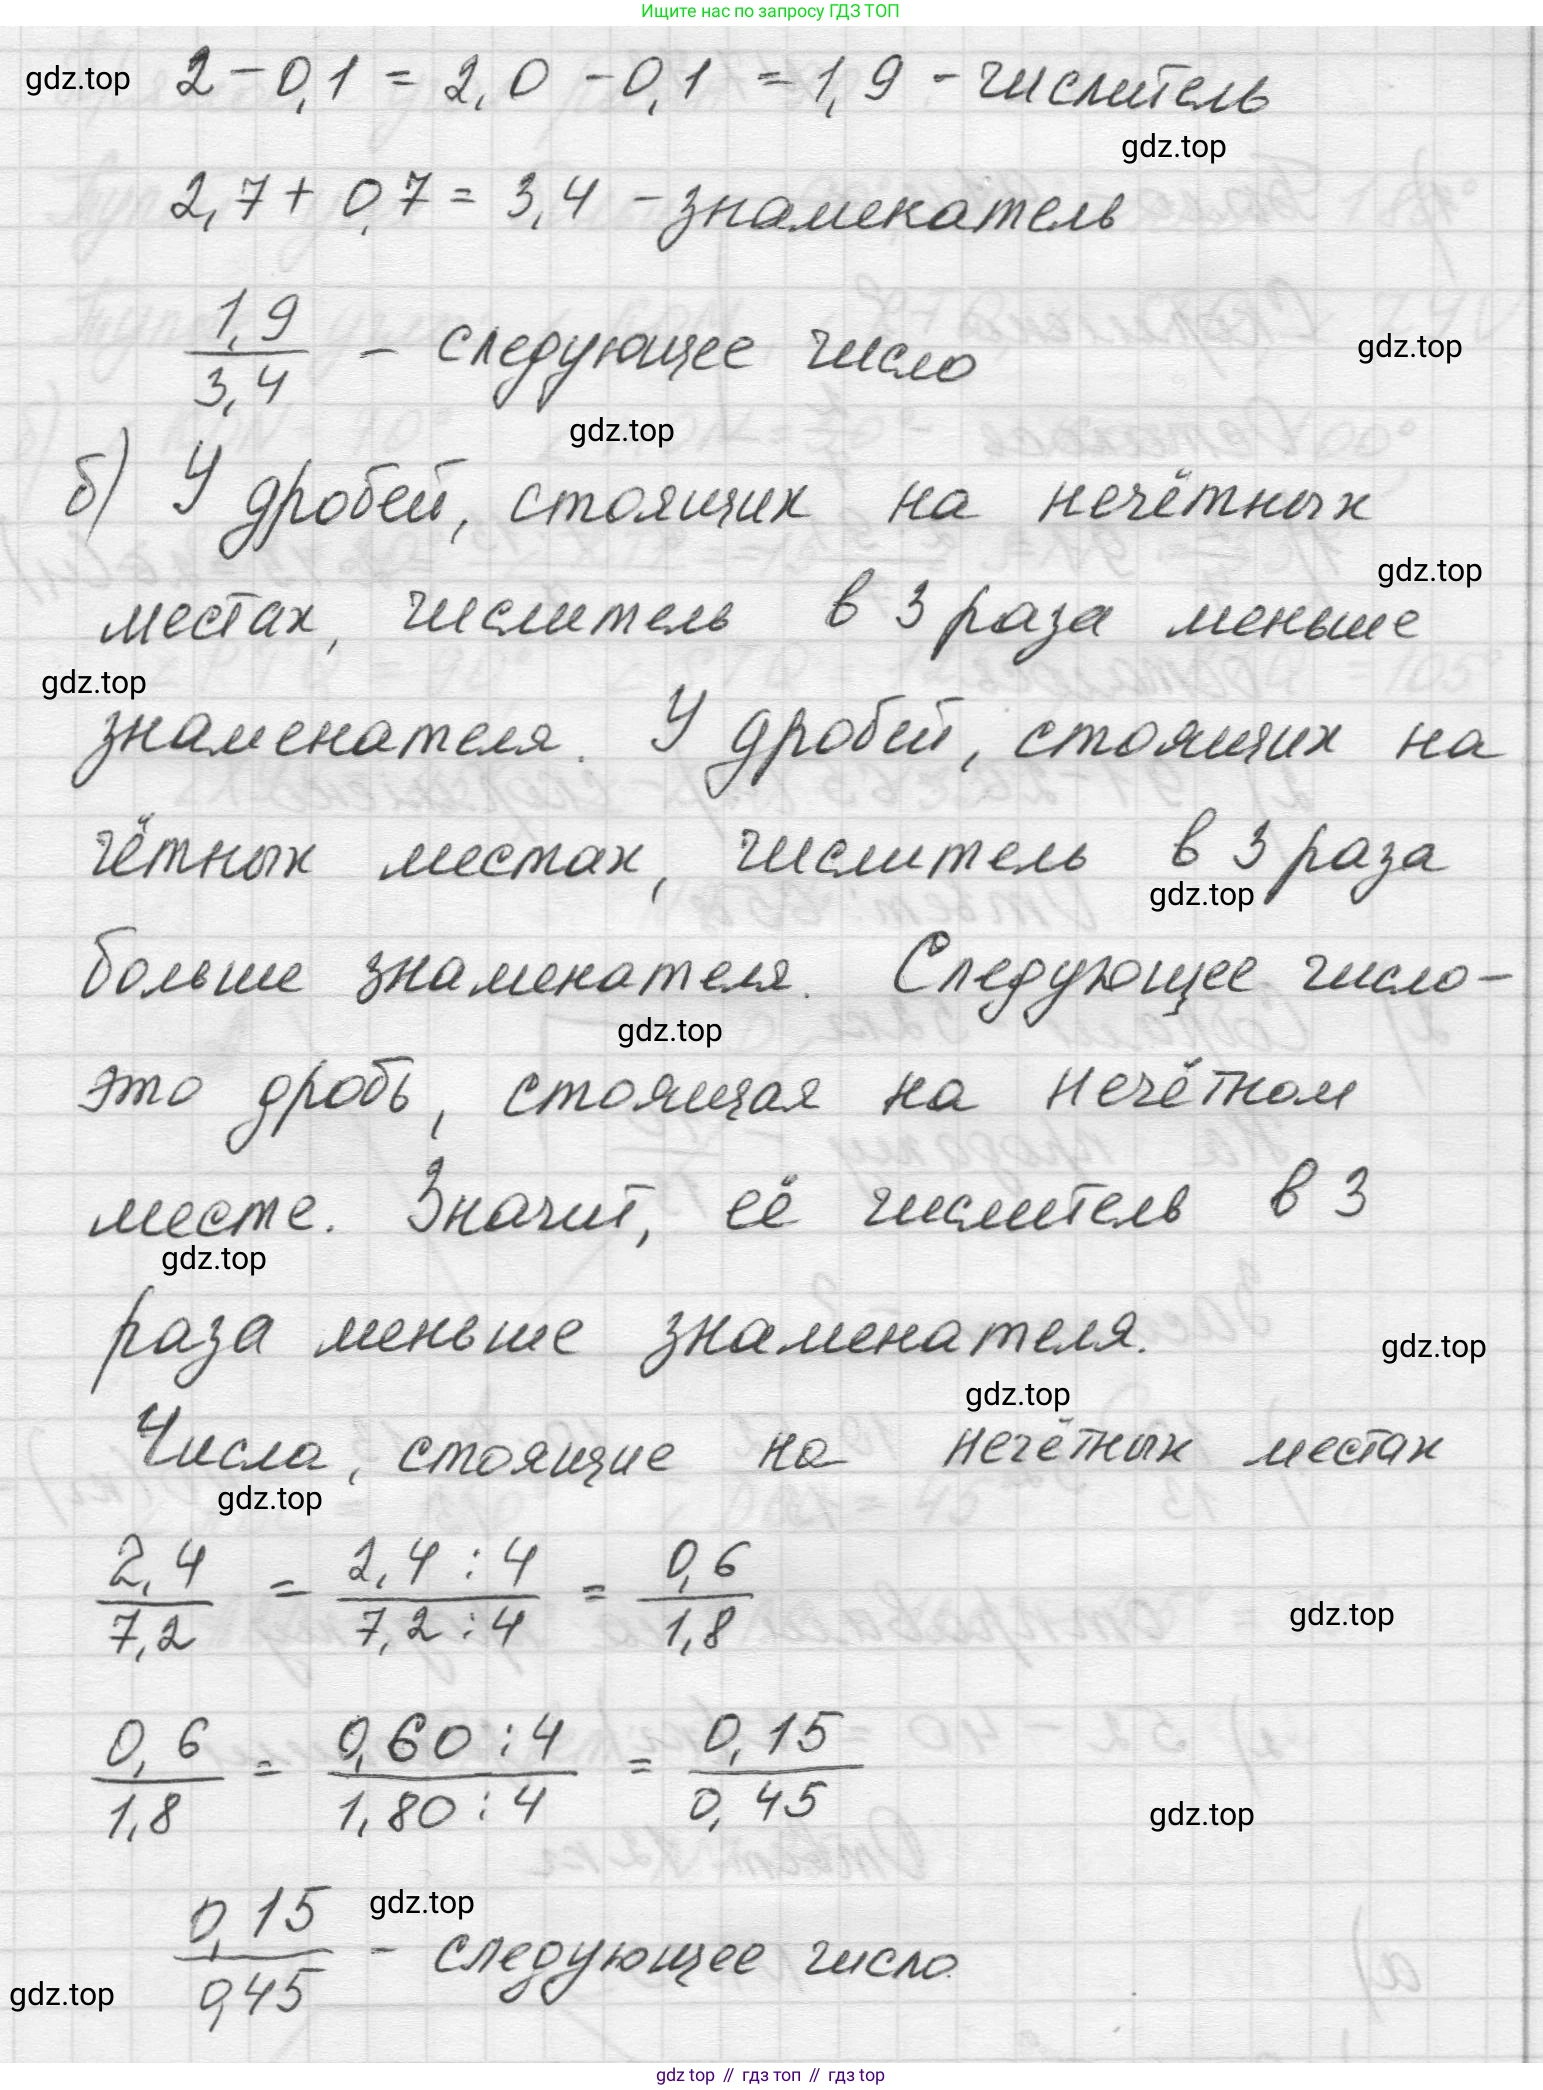 Ищите нас по запросу ГДЗ ТОП
gdz.top 2 - 0,1 = 2,0 - 0,1 = 1,9 - числитель
gdz.top
2,7 + 0,7 = 3,4 - знаменатель
1,9/3,4 - следующее число gdz.top
gdz.top
б) У дробей, стоящих на нечётных
gdz.top
местах, числитель в 3 раза меньше
gdz.top
знаменателя. У дробей, стоящих на
чётных местах, числитель в 3 раза
gdz.top
больше знаменателя. Следующее число-
gdz.top
это дробь, стоящая на нечётном
месте. Значит, её числитель в 3
gdz.top
раза меньше знаменателя. gdz.top
gdz.top
Числа, стоящие на нечётных местах
gdz.top
2,4/7,2 = 2,4:4/7,2:4 = 0,6/1,8 gdz.top
0,6/1,8 = 0,60:4/1,80:4 = 0,15/0,45 gdz.top
gdz.top
0,15/0,45 - следующее число.
gdz.top
gdz top // гдз топ // гдз top